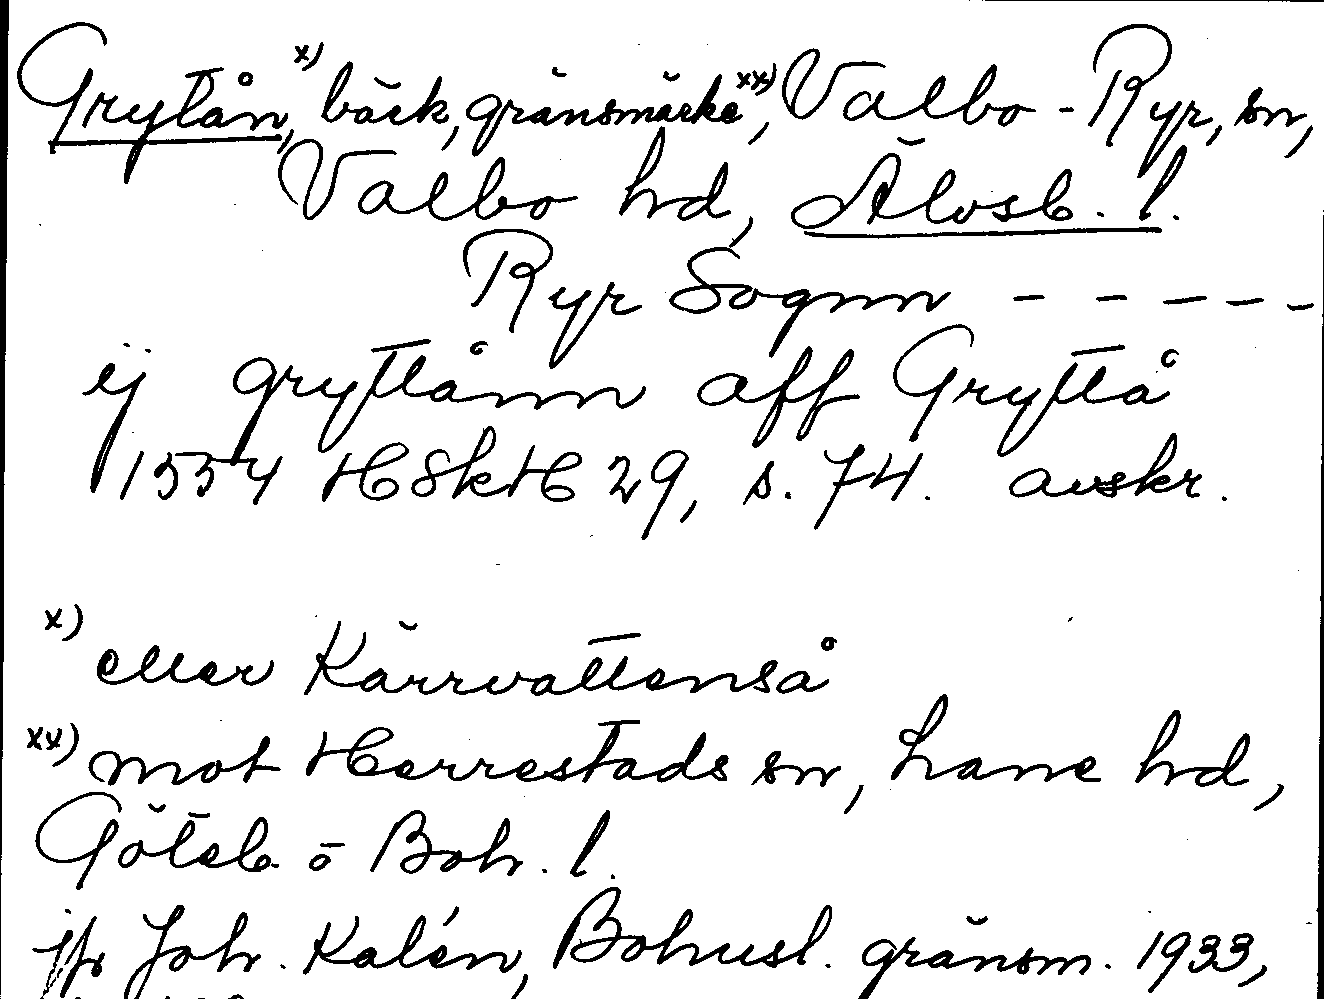 Grytån, x) bäck, gränsmärke xx), Valbo-Ryr, sn,
Valbo hd, Älvsb. l.
Ryr Sognn - - - - -
ij gryttånn aff Gryttå
1554 HSkH 29, s. 74. avskr.
x) eller Kärrvattenså
xx) mot Herrestads sn, Lane hd,
Göteb. o Boh. l.
jfr Joh. Kalén, Bohusl. gränsm. 1933,